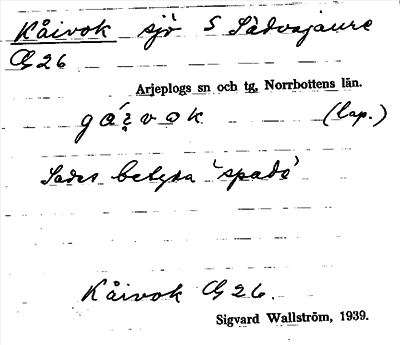 Kåivok sjö S Sädvajaure
G 26
Arjeplogs sn och tg. Norrbottens län.
(lap.)
Sades betyda 'spade'
Kåivok G 26.
Sigvard Wallström, 1939.